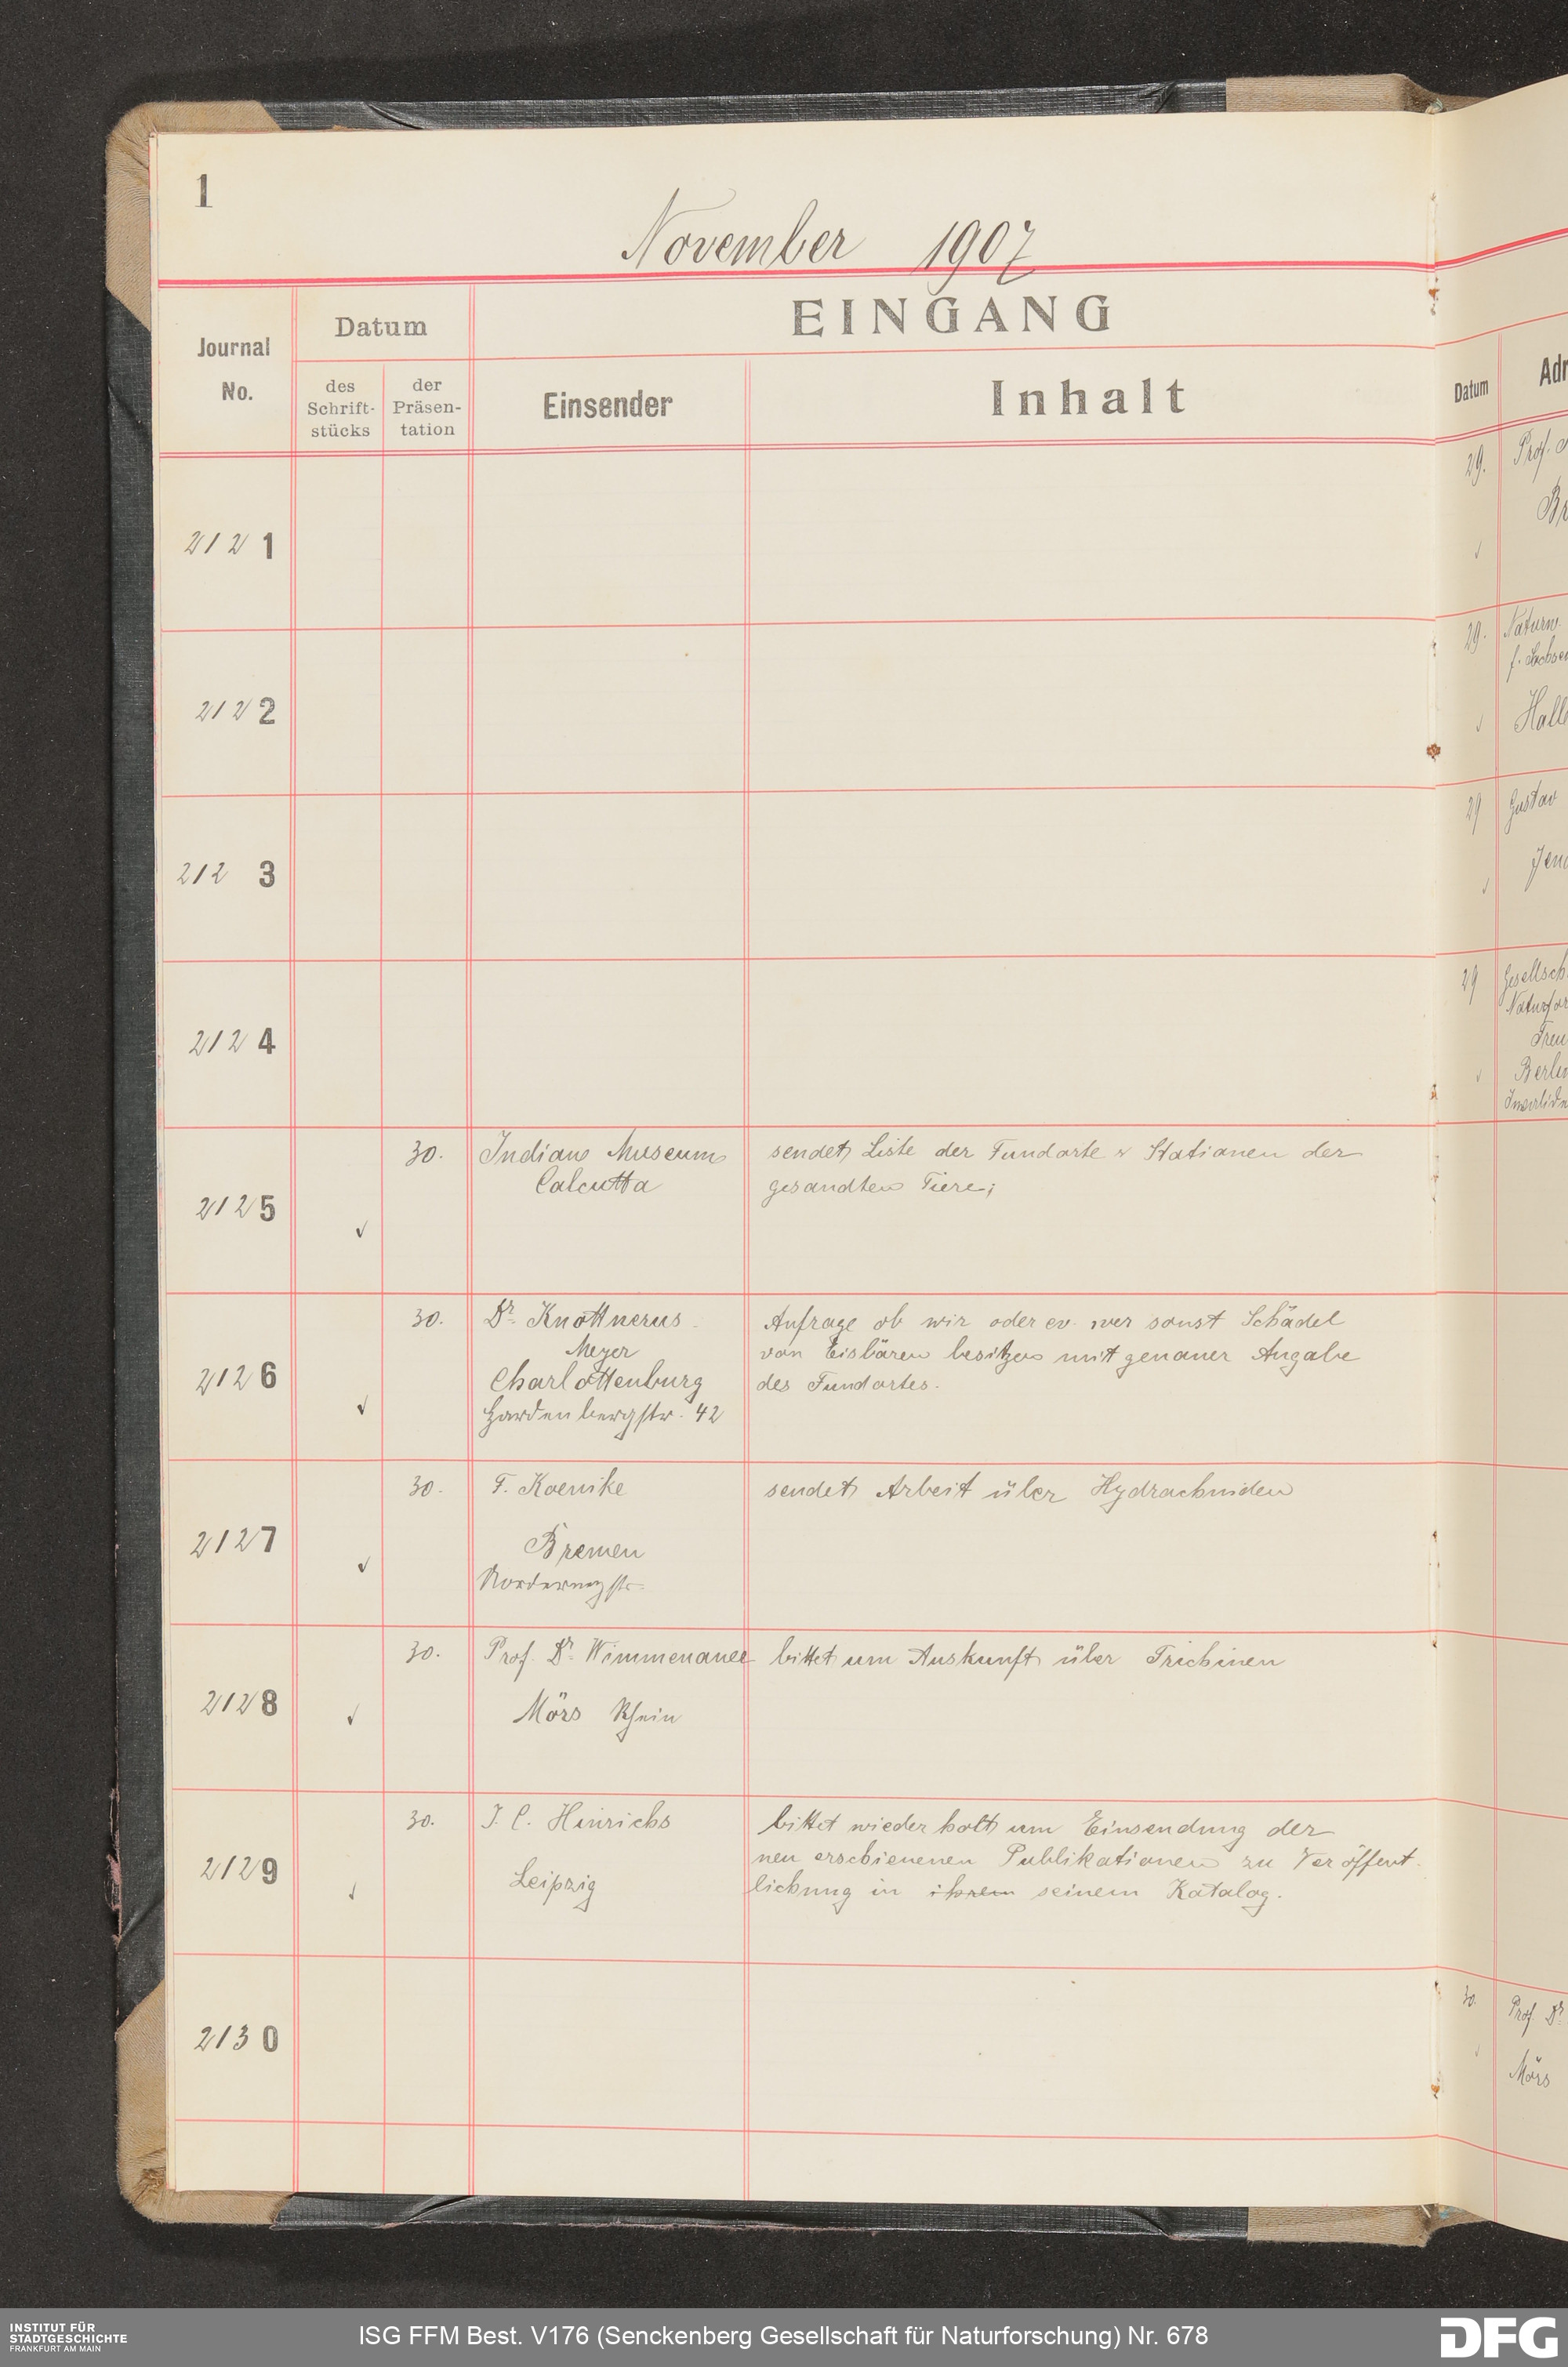 1
November 1907
EINGANG
Journal
No.
Datum
des
Schrift-
stücks
der
Präsen-
tation
Einsender
Inhalt
2121
2122
2123
2124
2125
30.
Indian Museum
Calcutta
sendet Liste der Fundorte & Stationen der
gesandten Tiere;
2126
30.
Dr. Knottnerus-
Meyer
Charlottenburg
Hardenbergstr. 42
Anfrage ob wir oder ev. wer sonst Schädel
von Eisbären besitzen mit genauer Angabe
des Fundortes.
2127
30.
F. Koenike
Bremen
sendet Arbeit über Hydrachniden
2128
30.
Prof. Dr. Wimmenauer
Mörs Rhein
bittet um Auskunft über Trichinen
2129
30.
J. C. Hinrichs
Leipzig
bittet wiederholt um Einsendung der
neu erschienenen Publikationen zu Veröffent-
lichung in ihrem seinem Katalog.
2130
Datum
Adr
29.
Prof.
Br
29.
Naturw.
f. Sachsen
Halle
29
Gustav
Jena
29
Gesellsch.
Naturfor
Freu
Berlin
Invaliden
30.
Prof Dr.
Mörs
INSTITUT FÜR
STADTGESCHICHTE
FRANKFURT AM MAIN
ISG FFM Best. V176 (Senckenberg Gesellschaft für Naturforschung) Nr. 678
DFG